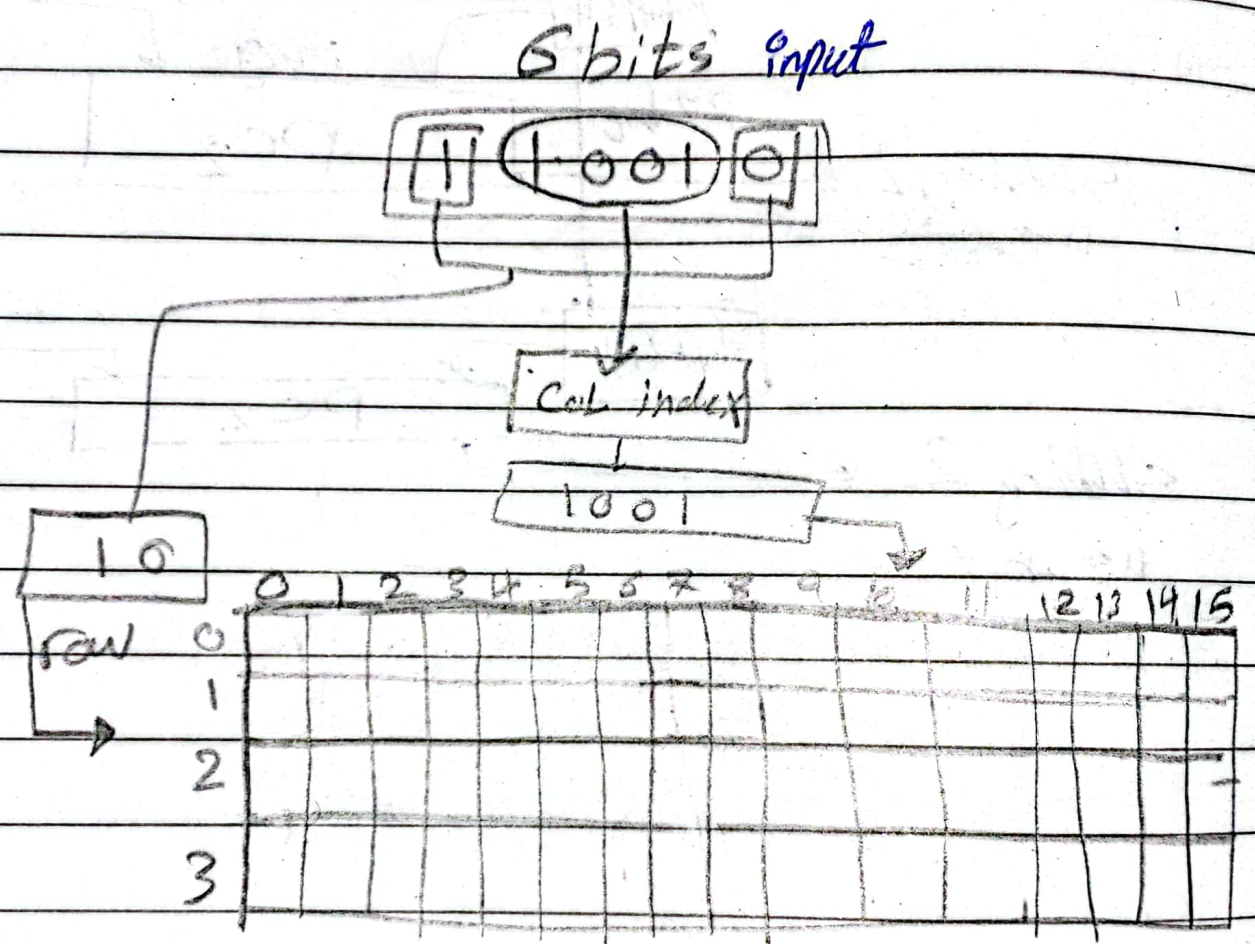 6 bits input
1 1001 0
Col index
1001
10
0 1 2 3 4 5 6 7 8 9 10 11 12 13 14 15
row 0
1
2
3